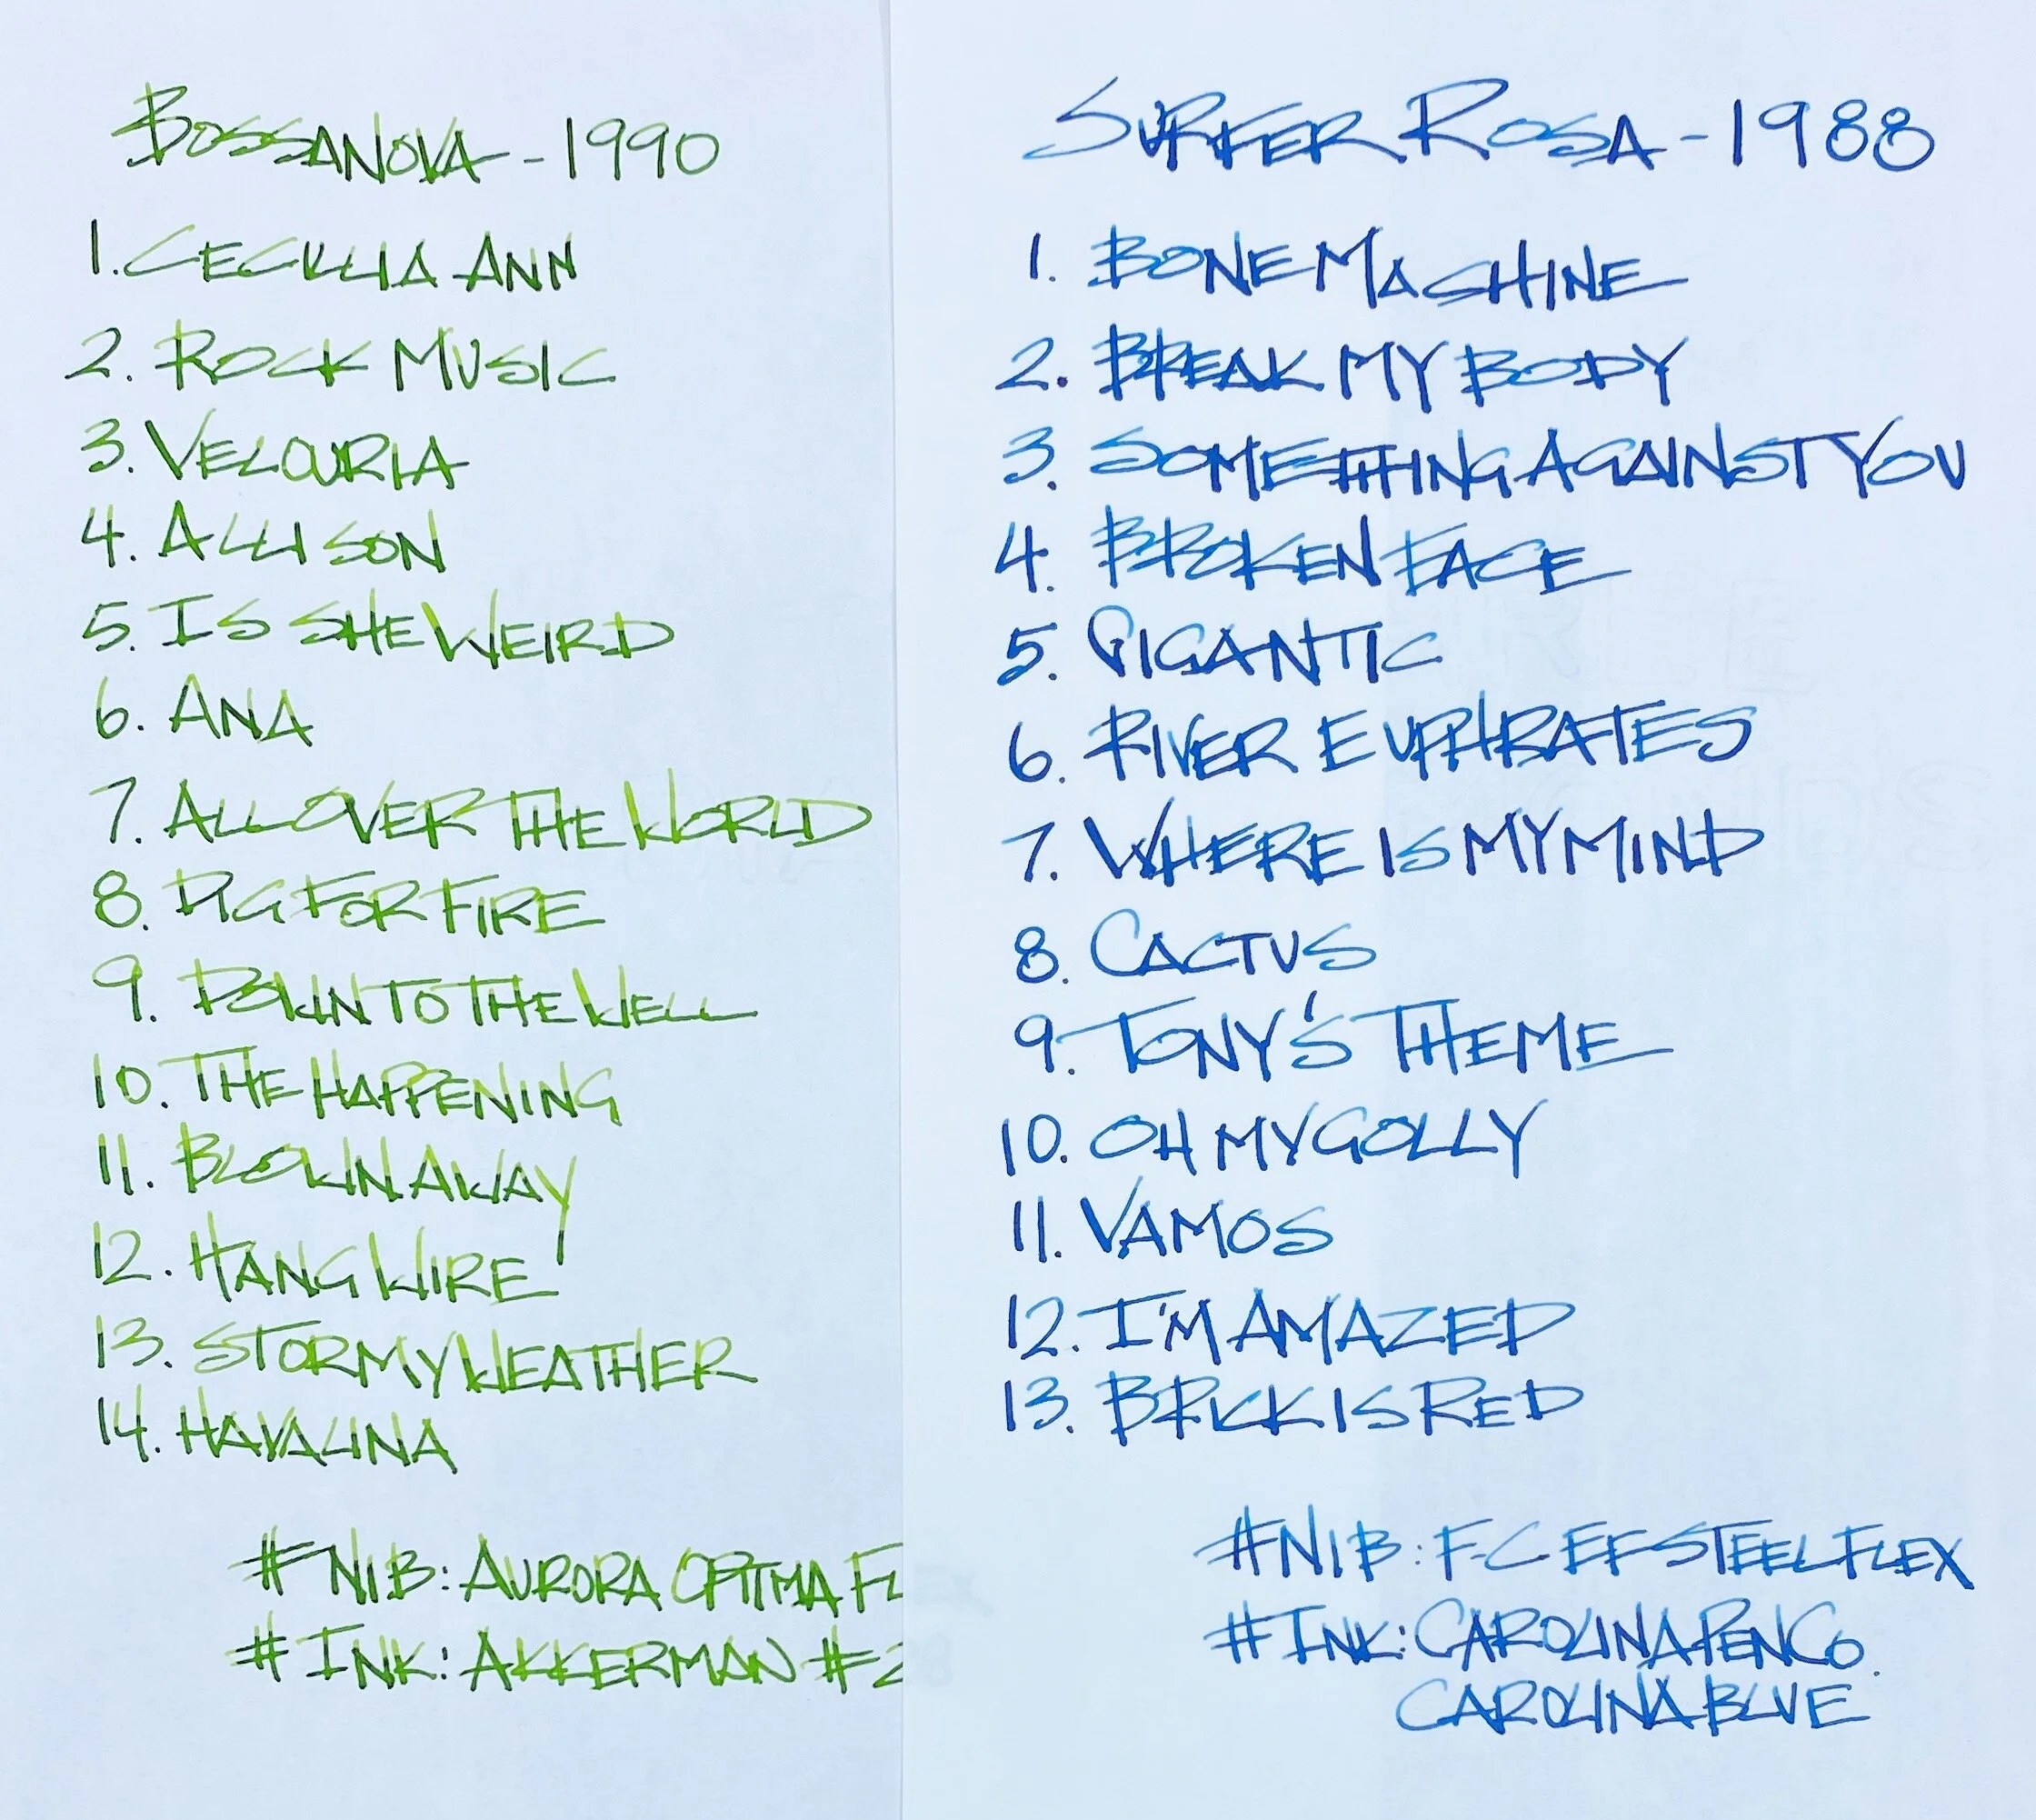 BOSSANOVA - 1990
1. CECILLIA ANN
2. ROCK MUSIC
3. VELOURIA
4. ALLISON
5. IS SHE WEIRD
6. ANA
7. ALL OVER THE WORLD
8. DIG FOR FIRE
9. DOWN TO THE WELL
10. THE HAPPENING
11. BLOWN AWAY
12. HANG WIRE
13. STORMY WEATHER
14. HAVALINA
#NIB: AURORA OPTIMA FL
#INK: AKKERMAN #2
SURFER ROSA - 1988
1. BONE MACHINE
2. BREAK MY BODY
3. SOMETHING AGAINST YOU
4. BROKEN FACE
5. GIGANTIC
6. RIVER EUPHRATES
7. WHERE IS MY MIND
8. CACTUS
9. TONY'S THEME
10. OH MY GOLLY
11. VAMOS
12. I'M AMAZED
13. BRICK IS RED
#NIB: F-C EF STEEL FLEX
#INK: CAROLINA PEN CO.
CAROLINA BLUE